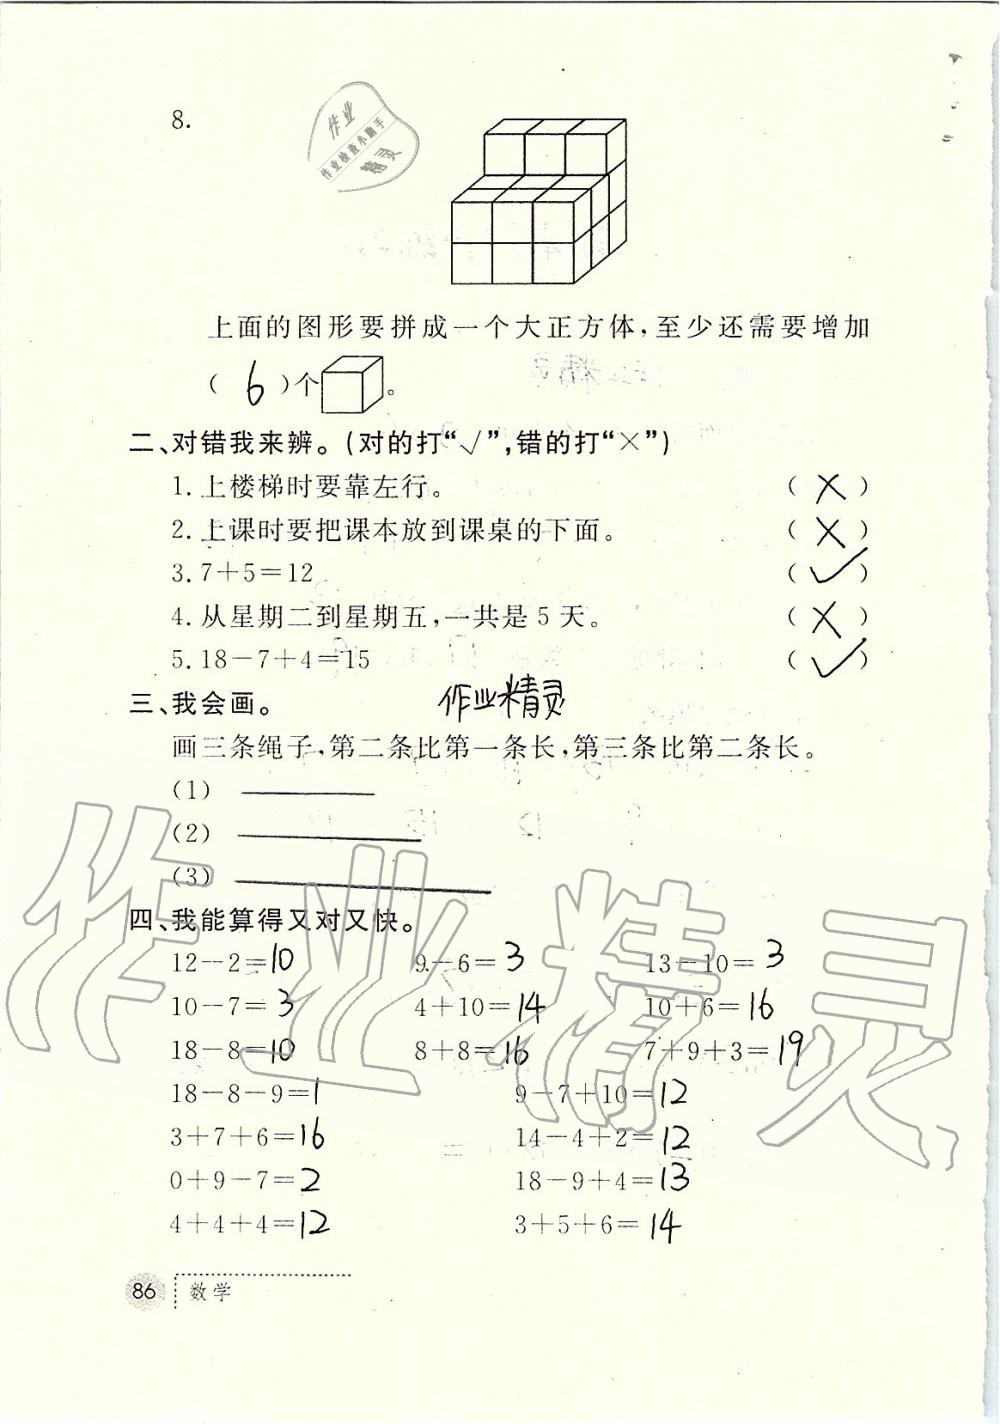 作业
作业检查小助手
精灵
8.
上面的图形要拼成一个大正方体,至少还需要增加
( 6 )个 。
二、对错我来辨。(对的打“√”,错的打“×”)
1. 上楼梯时要靠左行。 ( × )
2. 上课时要把课本放到课桌的下面。 ( × )
3. 7+5=12 ( √ )
4. 从星期二到星期五,一共是 5 天。 ( × )
5. 18-7+4=15 ( √ )
三、我会画。 作业精灵
画三条绳子,第二条比第一条长,第三条比第二条长。
(1)
(2)
(3)
四、我能算得又对又快。
12-2=10 9-6=3 13-10=3
10-7=3 4+10=14 10+6=16
18-8=10 8+8=16 7+9+3=19
18-8-9=1 9-7+10=12
3+7+6=16 14-4+2=12
0+9-7=2 18-9+4=13
4+4+4=12 3+5+6=14
作业精灵
86 数学